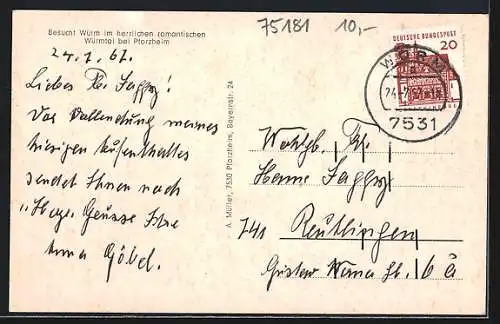 Besucht Würm im herrlichen romantischen
Würmtal bei Pforzheim
75181 10,-
DEUTSCHE BUNDESPOST
20
WÜRM
24.-7.67.-18
7531
24.7.67.
Liebes Frl. !
Vor Vollendung meines
hiesigen Aufenthaltes
sendet Ihnen noch
"Herzl. Grüsse Ihre
Anna Göbel.
A. Müller, 7530 Pforzheim, Bayernstr. 24
Wohlgb. Frl.
Hanne
741 Reutlingen
Gustav Werner Str. 6a